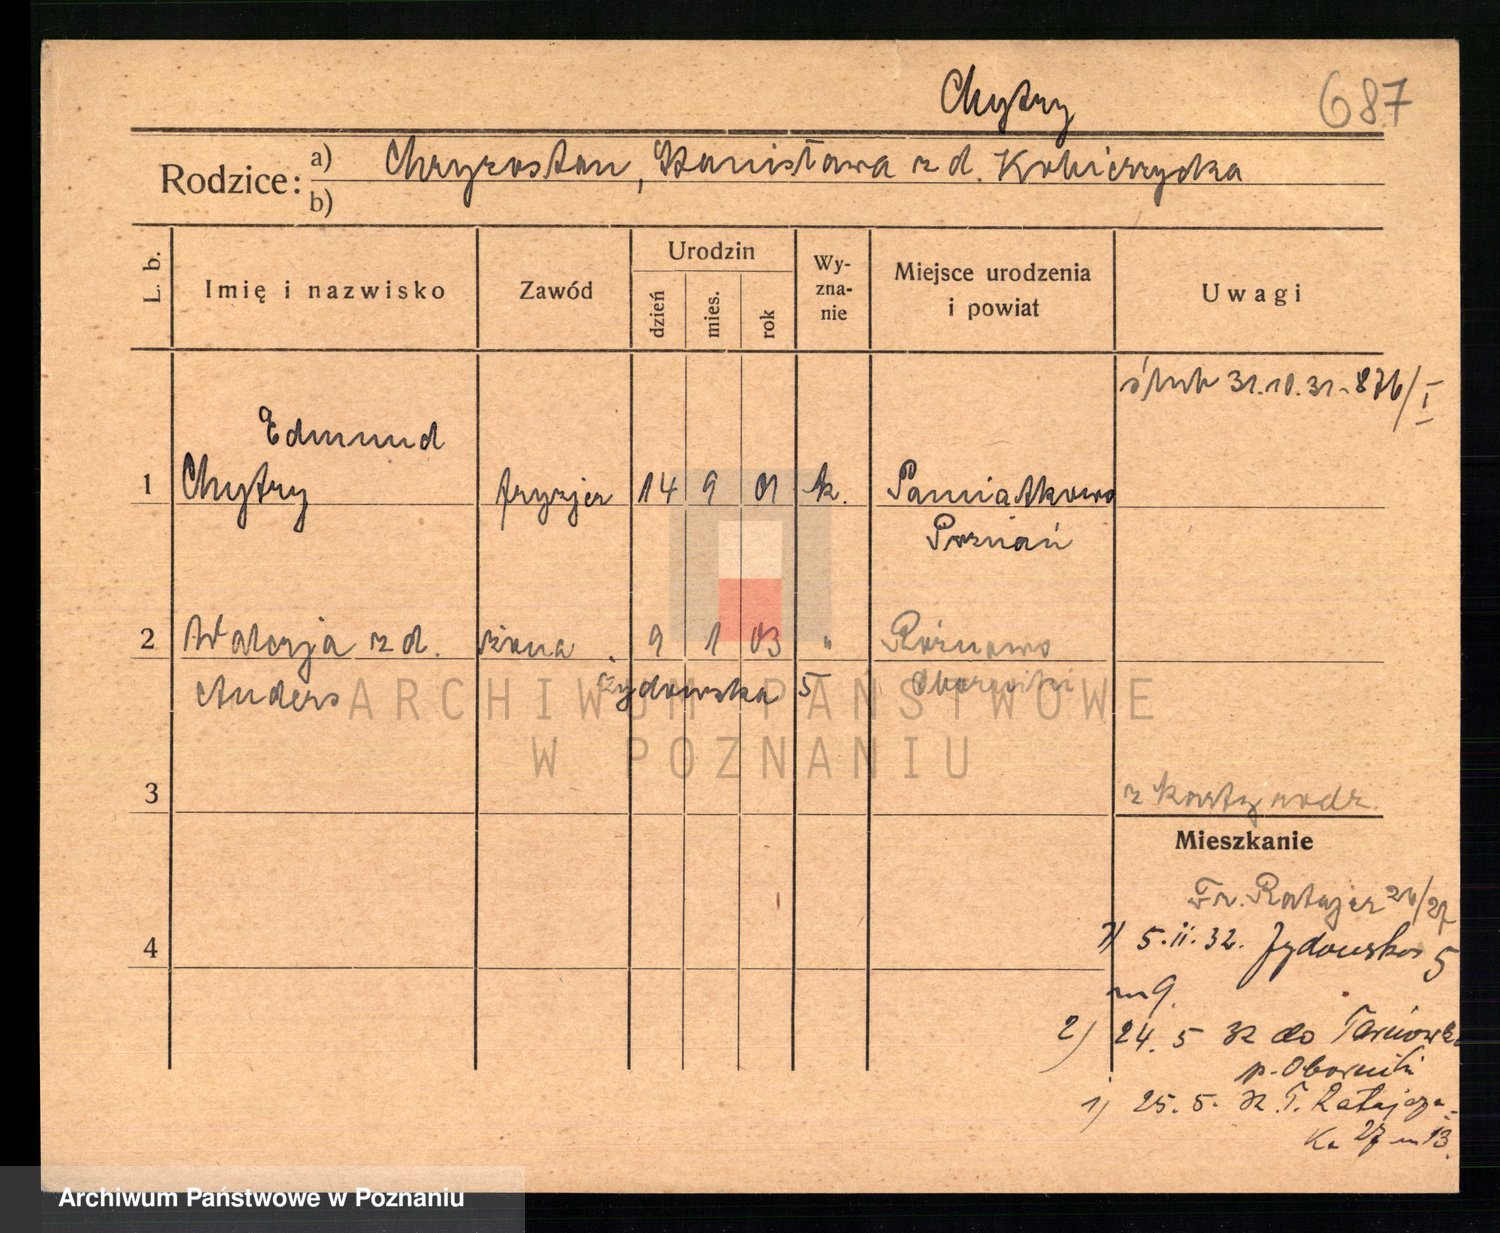 Chytry 687
Rodzice: a) Chryzostom, Stanisława z d. Kobierzycka
b)
L. b. Imię i nazwisko Zawód Urodzin dzień mies. rok Wy-zna-nie Miejsce urodzenia i powiat Uwagi
ślub 31.10.31-876/I
Edmund
1 Chytry fryzjer 14 9 01 k. Pamiątkowo
Poznań
2 Walerja z d. żona 9 1 03 " Rożnowo
Anders Żydowska 5 Oborniki
ARCHIWUM PAŃSTWOWE
W POZNANIU
3 z karty rodz.
Mieszkanie
Fr. Ratajcz 26/27
4 5.II.32. Żydowska 5
m 9.
2) 24. 5 32 do Tarnowka
p. Oborniki
1) 25. 5. 32. F. Ratajcza-
ka 27 m 13.
Archiwum Państwowe w Poznaniu